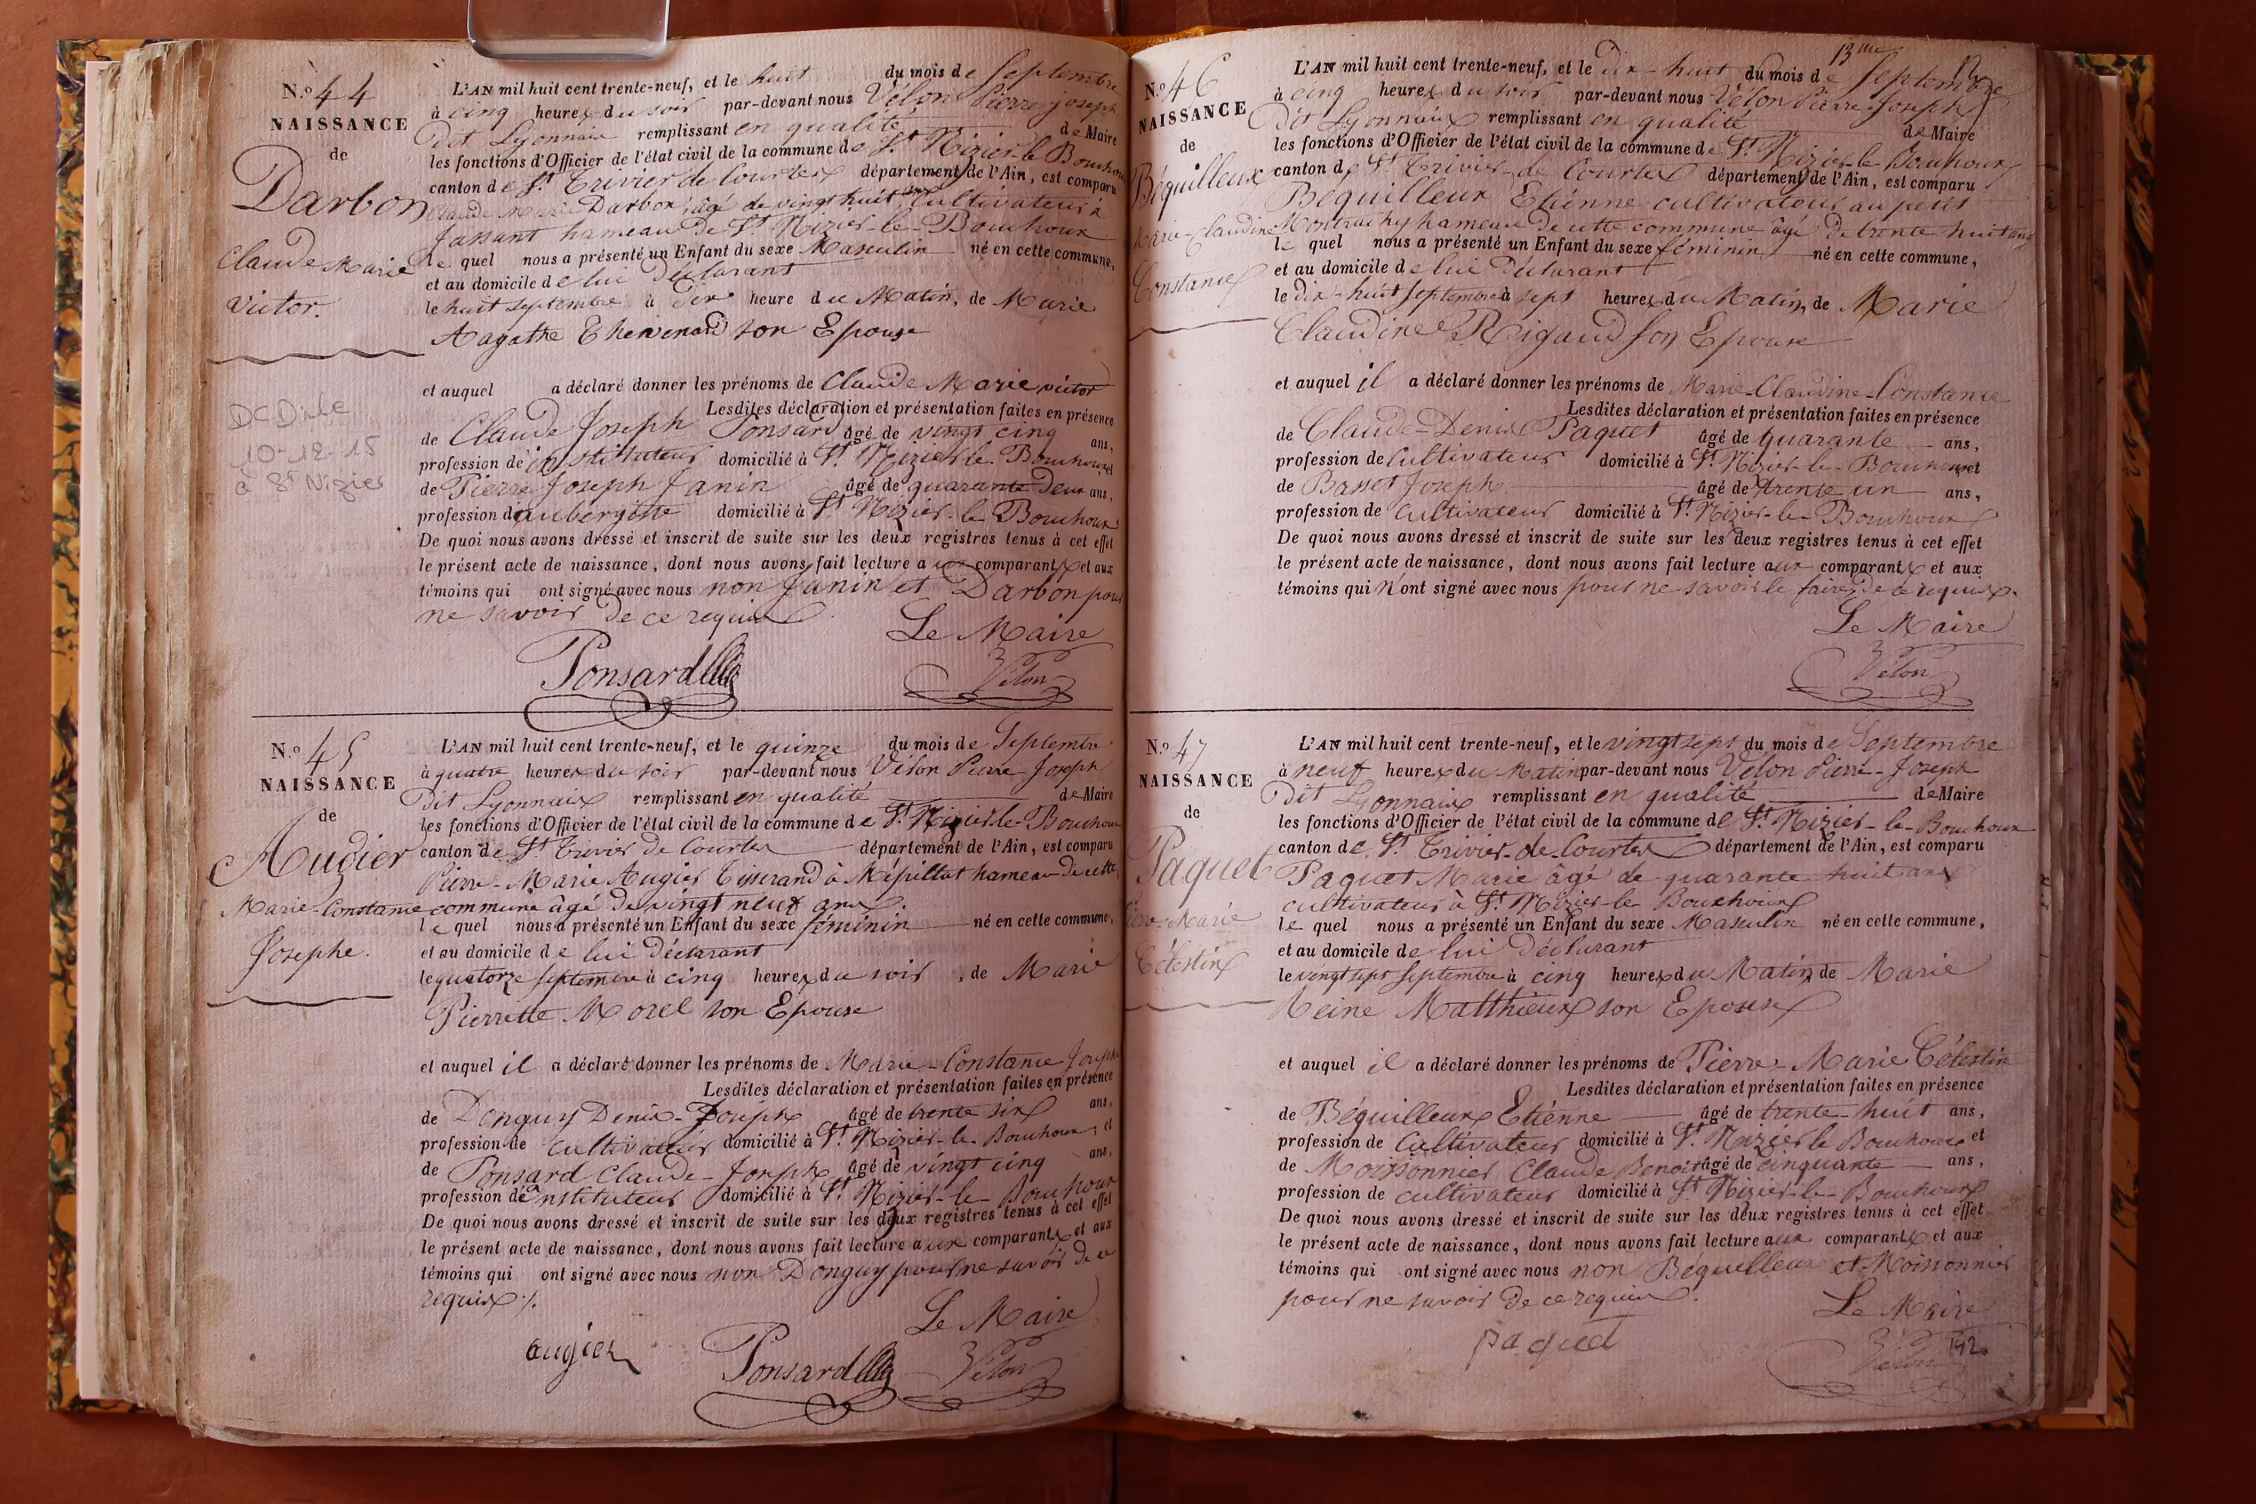 N.º 44
NAISSANCE
de
Darbon
Claude Marie
Victor.
DCD le
10-12-15
à St Nizier
L'AN mil huit cent trente-neuf, et le huit du mois de Septembre
à cinq heures du soir par-devant nous Vélon Pierre Joseph
Dit Lyonnais remplissant en qualité de Maire
les fonctions d'Officier de l'état civil de la commune de St Nizier-le Bouchoux
canton de St Trivier de Courtes département de l'Ain, est comparu
Claude Marie Darbon âgé de vingt huit ans Cultivateur à
Jassant hameau de St Nizier-le-Bouchoux
le quel nous a présenté un Enfant du sexe Masculin né en cette commune,
et au domicile de lui déclarant
le huit septembre à dix heure du Matin, de Marie
Aagathe Thevenard son Epouse
et auquel a déclaré donner les prénoms de Claude Marie victor
Lesdites déclaration et présentation faites en présence
de Claude Joseph Ponsard âgé de vingt cinq ans,
profession de institituteur domicilié à St Nizier-le-Bouchoux et
de Pierre Joseph Janin âgé de quarante Deux ans,
profession d'aubergiste domicilié à St Nizier-le-Bouchoux
De quoi nous avons dressé et inscrit de suite sur les deux registres tenus à cet effet
le présent acte de naissance, dont nous avons fait lecture aux comparants et aux
témoins qui ont signé avec nous non Janin et Darbon pour
ne savoir de ce requis
Le Maire
Ponsard Vélon
N.º 45
NAISSANCE
de
Augier
Marie-Constance
Josephe.
L'AN mil huit cent trente-neuf, et le quinze du mois de Septembre
à quatre heures du soir par-devant nous Vélon Pierre Joseph
Dit Lyonnaix remplissant en qualité de Maire
les fonctions d'Officier de l'état civil de la commune de St Nizier-le-Bouchoux
canton de St Trivier de Courtes département de l'Ain, est comparu
Pierre-Marie Augier Tisserand à Mépillat hameau de cette
commune âgé de vingt neuf ans.
le quel nous a présenté un Enfant du sexe féminin né en cette commune,
et au domicile de lui déclarant
le quatorze septembre à cinq heures du soir, de Marie
Pierrette Morel son Epouse
et auquel il a déclaré donner les prénoms de Marie-Constance Josephe
Lesdites déclaration et présentation faites en présence
de Donguy Denis-Joseph âgé de trente six ans,
profession de cultivateur domicilié à St Nizier-le-Bouchoux, et
de Ponsard Claude-Joseph âgé de vingt cinq ans,
profession d'instituteur domicilié à St Nizier-le-Bouchoux
De quoi nous avons dressé et inscrit de suite sur les deux registres tenus à cet effet
le présent acte de naissance, dont nous avons fait lecture aux comparants et aux
témoins qui ont signé avec nous non Donguy pour ne savoir de ce
requis ./.
Le Maire
augier Ponsard Vélon
13me
N.º 46
NAISSANCE
de
Béquilleux
Marie-Claudine
Constance
L'AN mil huit cent trente-neuf, et le dix-huit du mois de Septembre
à cinq heures du soir par-devant nous Vélon Pierre Joseph
Dit Lyonnaix remplissant en qualité de Maire
les fonctions d'Officier de l'état civil de la commune de St Nizier-le-Bouhoux
canton de St Trivier-de Courtes département de l'Ain, est comparu
Béquilleux Etiénne cultivateur au petit
Montrachy hameau de cette commune âgé de trente huit ans
le quel nous a présenté un Enfant du sexe féminin né en cette commune,
et au domicile de lui déclarant
le dix-huit septembre à sept heures du Matin, de Marie
Claudine Rigaud son Epouse
et auquel il a déclaré donner les prénoms de Marie-Claudine-Constance
Lesdites déclaration et présentation faites en présence
de Claude-Denis Paquet âgé de quarante ans,
profession de cultivateur domicilié à St Nizier-le-Bouchoux et
de Basset Joseph âgé de trente un ans,
profession de cultivateur domicilié à St Nizier-le-Bouchoux
De quoi nous avons dressé et inscrit de suite sur les deux registres tenus à cet effet
le présent acte de naissance, dont nous avons fait lecture aux comparants et aux
témoins qui n'ont signé avec nous pour ne savoir le faire de ce requis.
Le Maire
Vélon
N.º 47
NAISSANCE
de
Paquet
Marie
Célestin
L'AN mil huit cent trente-neuf, et le vingt sept du mois de Septembre
à neuf heures du Matin par-devant nous Vélon Pierre-Joseph
Dit Lyonnaix remplissant en qualité de Maire
les fonctions d'Officier de l'état civil de la commune de St Nizier-le-Bouchoux
canton de St Trivier-de-Courtes département de l'Ain, est comparu
Paquet Marie âgé de quarante huit ans
cultivateur à St Nizier-le Bouchoux
le quel nous a présenté un Enfant du sexe Masculin né en cette commune,
et au domicile de lui déclarant
le vingt sept Septembre à cinq heures du Matin de Marie
Reine Matthieux son Epouse
et auquel il a déclaré donner les prénoms de Pierre-Marie Célestin
Lesdites déclaration et présentation faites en présence
de Béquilleux Etiénne âgé de trente-huit ans,
profession de cultivateur domicilié à St Nizier le Bouchoux et
de Moissonnier Claude Benoit âgé de cinquante ans,
profession de cultivateur domicilié à St Nizier-le-Bouchoux
De quoi nous avons dressé et inscrit de suite sur les deux registres tenus à cet effet
le présent acte de naissance, dont nous avons fait lecture aux comparants et aux
témoins qui ont signé avec nous non Béquilleux et Moissonnier
pour ne savoir de ce requis.
Le Maire
paquet Vélon
192